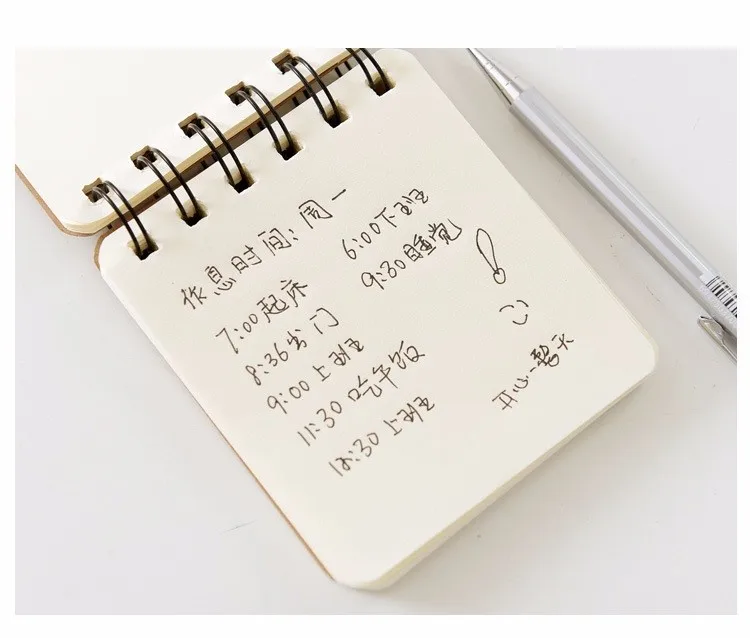 作息时间:周一
7:00起床
8:36出门
9:00上班
11:30吃午饭
12:30上班
6:00下班
9:30睡觉
!
开心一整天